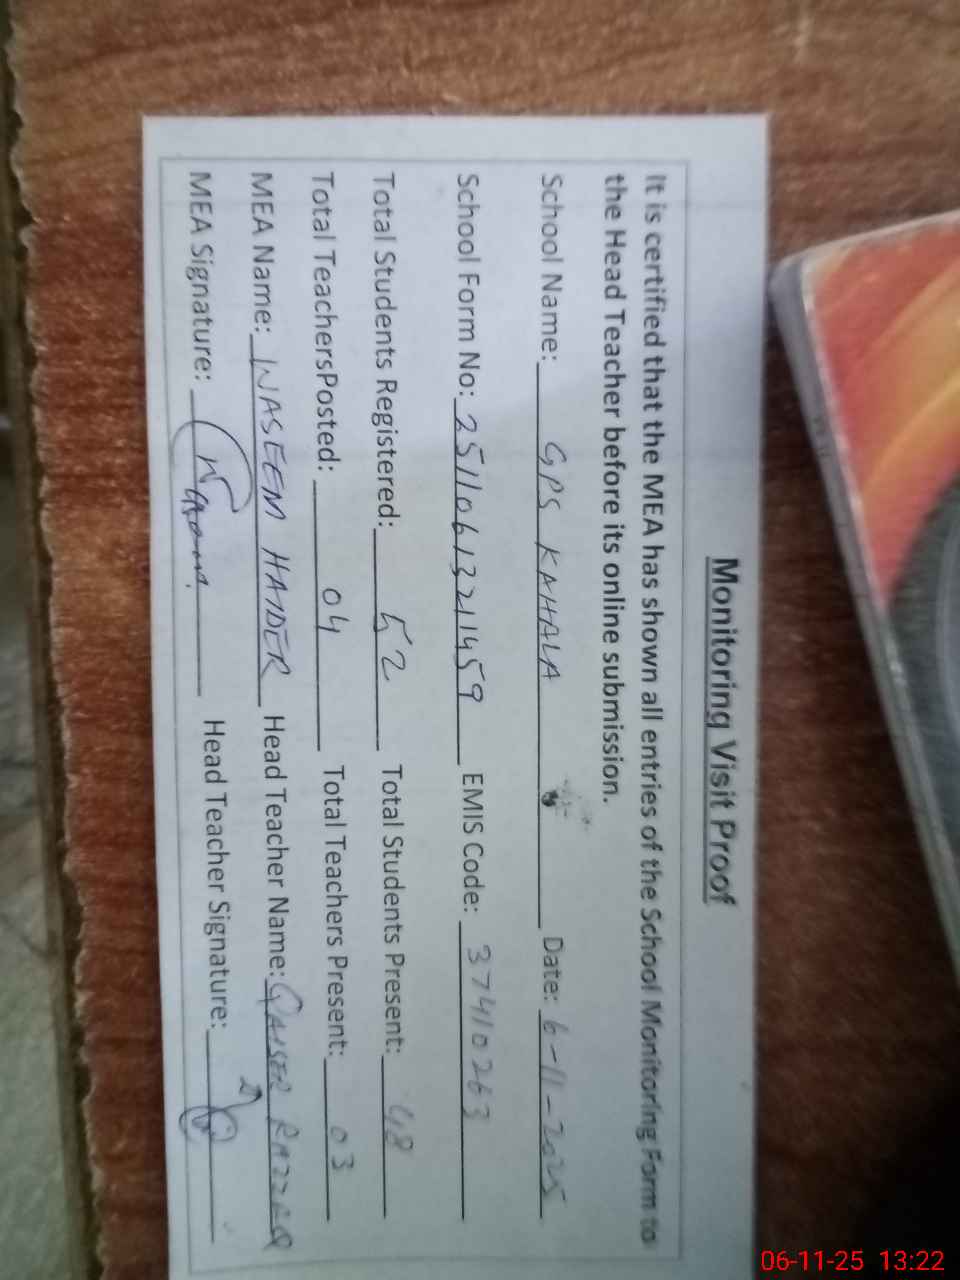 Monitoring Visit Proof
It is certified that the MEA has shown all entries of the School Monitoring Form to
the Head Teacher before its online submission.
School Name: GPS KAHALA Date: 6-11-2025
School Form No: 25110613211459 EMIS Code: 37410263
Total Students Registered: 52 Total Students Present: 48
Total TeachersPosted: 04 Total Teachers Present: 03
MEA Name: WASEEM HAIDER Head Teacher Name: QAISER RAZZAQ
MEA Signature: Head Teacher Signature:
06-11-25 13:22